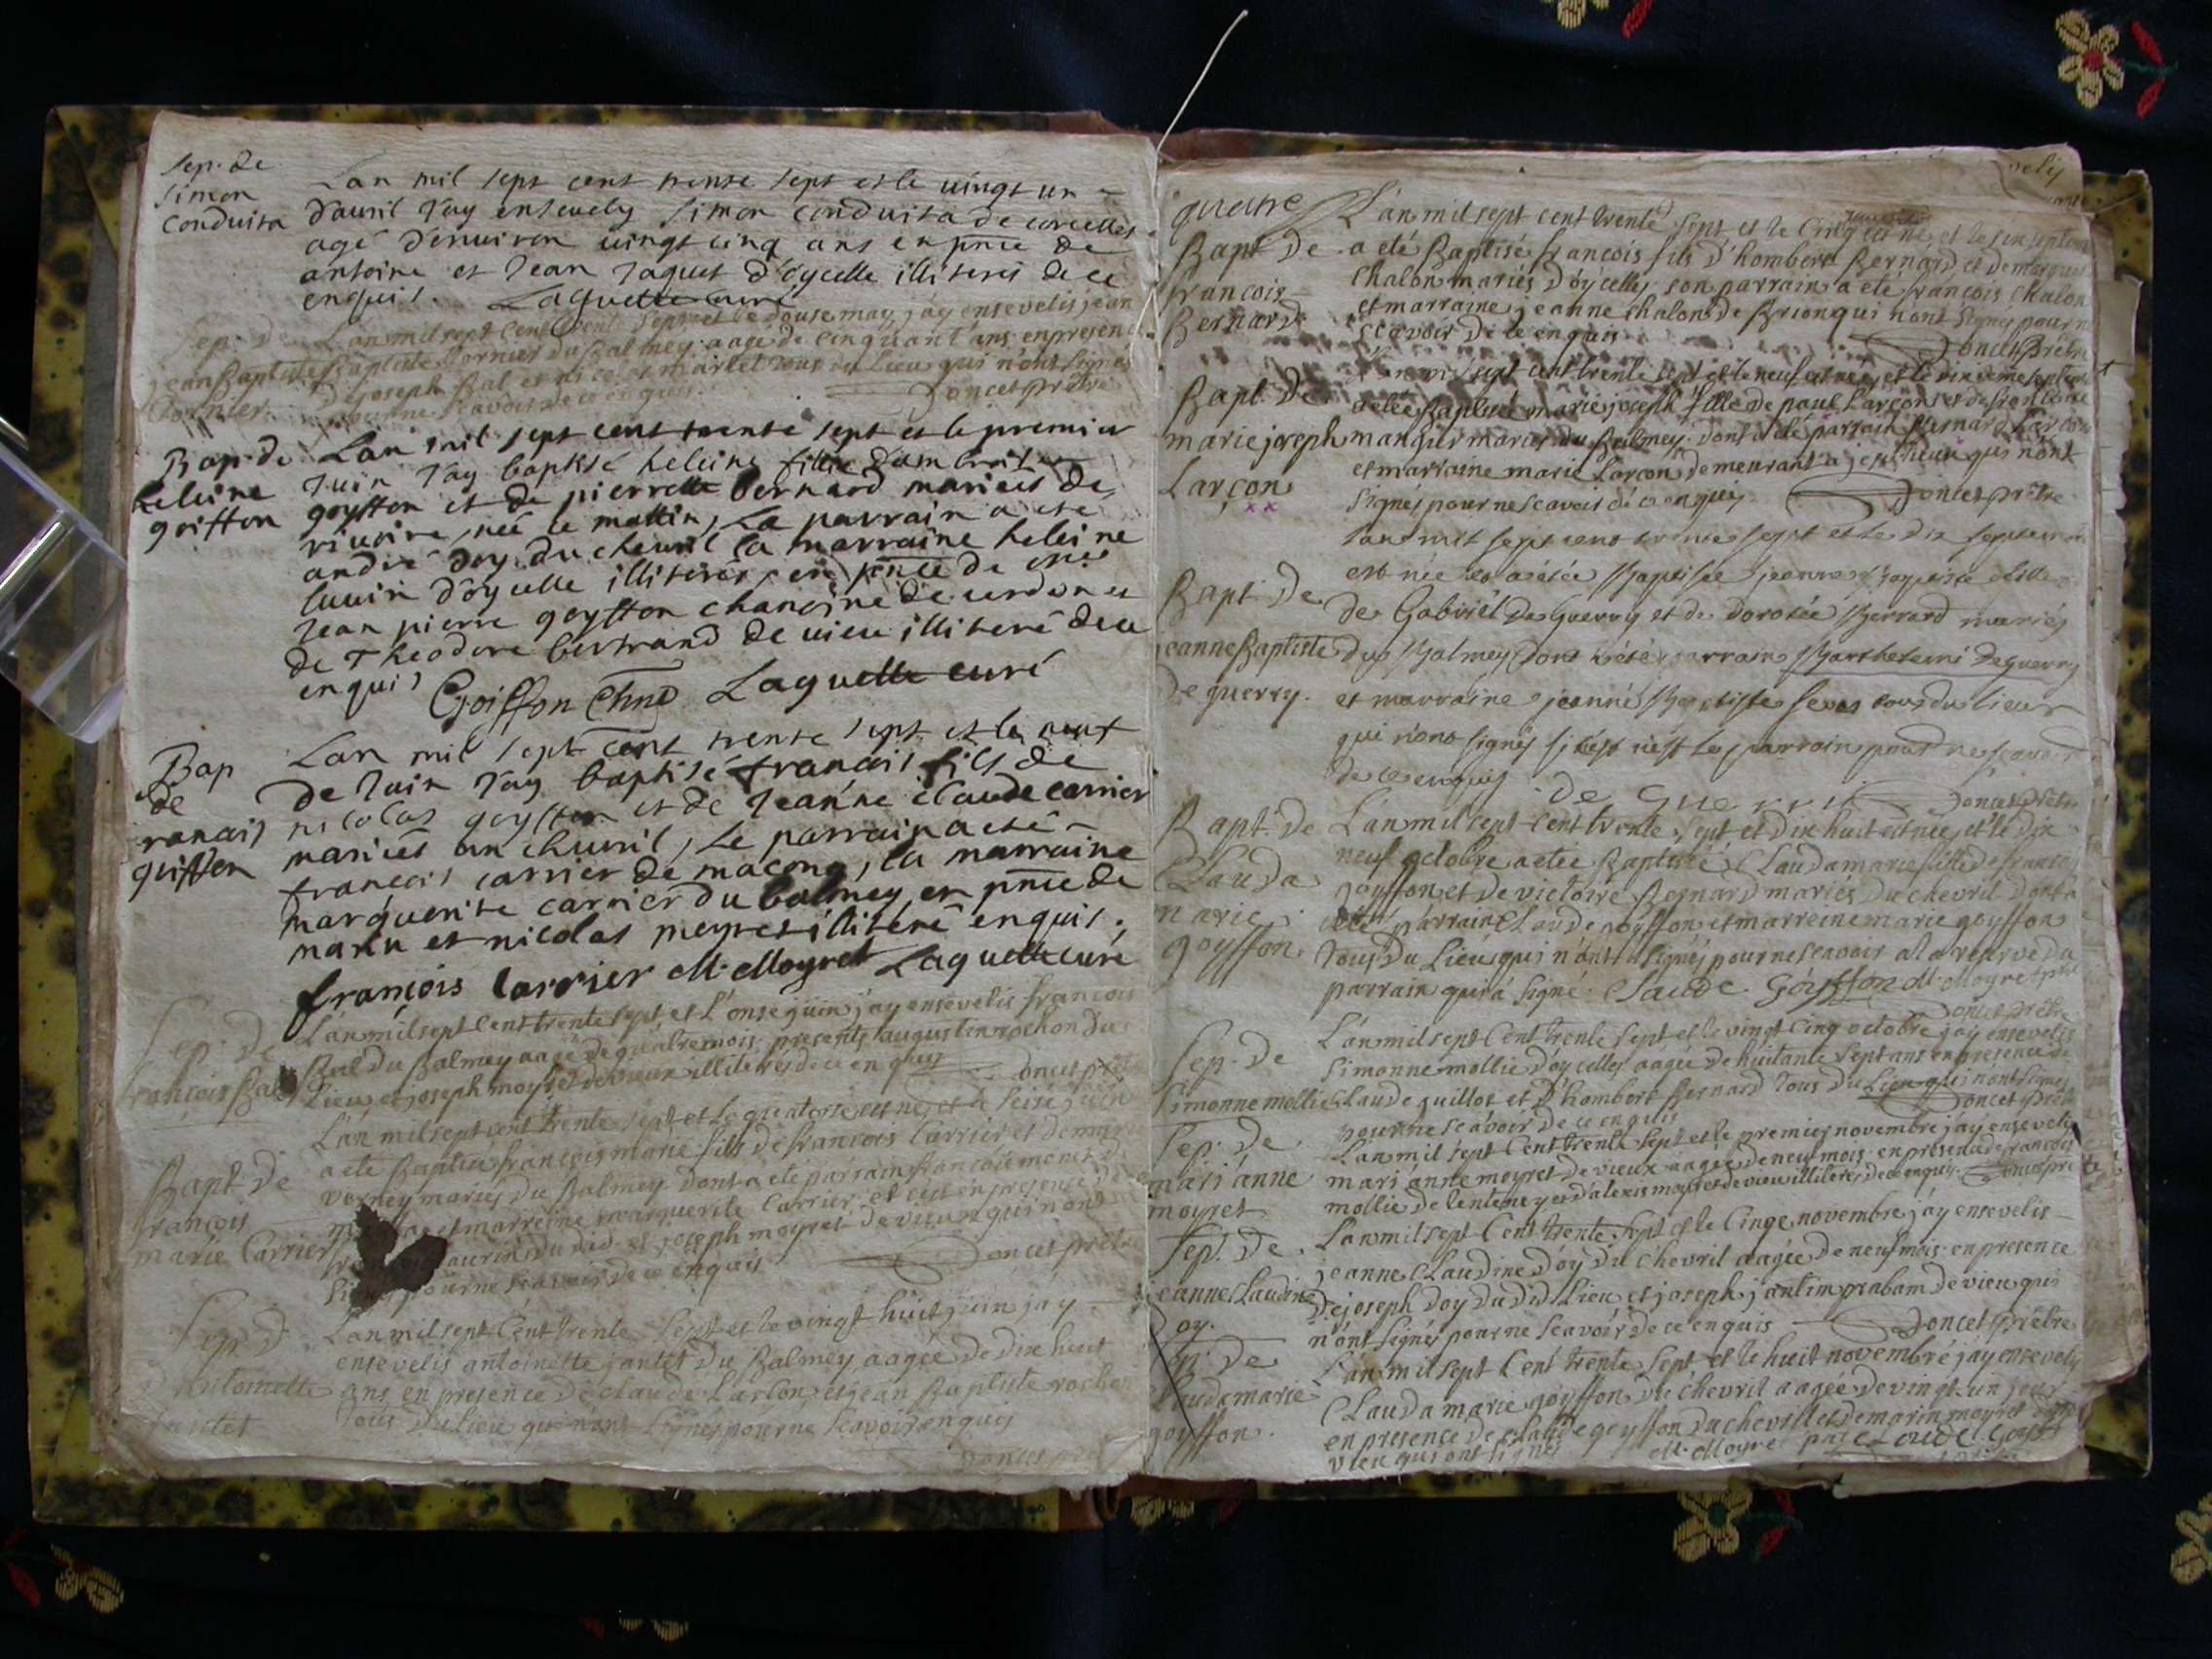 Sep. de
Simon
Conduita
Lan mil sept cent trente sept et le vingt un
d'auril J'ay enseuely Simon Conduita de corcelles
agé d'enuiron uingt cinq ans en pnce de
antoine et Jean Jaquet d'oycelle illiteres de ce
enquis. Laguette curé
Sep. de
jean Baptiste
Cornier
L'an mil sept cent trente sept et le douse may j'ay ensevelis jean
Baptiste Cornier du Balmey aagé de cinquant'ans en presence
de joseph Bal et martel tous du Lieu qui n'ont signés
pour ne scavoir de ce enquis. Doncet prêtre
Bap. de
heleine
goiffon
Lan mil sept cent trente sept et le premier
Juin J'ay baptisé heleine fille d'ambroise
goyffon et de pierrette bernard mariees de
riuoire, née le mattin, Le parrain a esté
andré doy du cheuril la marraine heleine
d'oycelle illiterés, en pnce de mre
Jean pierre goyffon chanoine de cerdon et
de Theodore bertrand de uieu illiteré de ce
enquis
Goiffon Chne Laguette curé
Bap
de
francois
goiffon
Lan mil sept cent trente sept et le neuf
de Juin J'ay baptisé francois fils de
nicolas goyffon et de Jeanne claude carrier
mariees du cheuril, Le parrain a esté
françois carrier de macong, la marraine
marguerite carrier du balmey en pnce de
marin et nicolas meyret illiteré enquis.
françois Carrier M. Moyret Laguette curé
Sep. de
francois Bal
L'an mil sept cent trente sept et l'onse juin j'ay ensevelis francois
Bal du Balmey aagé de quatre mois. presents augustin rochon du
Lieu et joseph moyret de vieux illiterés de ce enquis Doncet ptre
Bapt. de
francois
marie Carrier
L'an mil sept cent trente sept et le quatorse est né, et le seise juin
a eté Baptisé francois marie fils de francois Carrier et de marie
verney mariés du Balmey dont a eté parrain francois
et marreine marguerite Carrier et ce en presence de
du dit et joseph moyret de vieux qui n'ont
signés pour ne scavoir de ce enquis Doncet prêtre
Sep. de
Antoinette
jantet
L'an mil sept cent trente sept et le vingt huit juin j'ay
ensevelis antoinette jantet du Balmey aagée de dix huit
ans en presence de claude Larcon et jean Baptiste rochon
tous du lieu qui n'ont signés pour ne scavoir enquis
Doncet ptre
quatre
Bapt. de
francois
Bernard
L'an mil sept cent trente sept et le cinq est né, et le six septembre
a eté Baptisé francois fils d'hombert Bernard et de marguerite
chalon mariés d'oycelle, son parrain a eté francois chalon
et marraine jeanne chalon de Brion qui n'ont signés pour ne
scavoir de ce enquis Doncet Prêtre
Bapt. de
marie joseph
Larçon
L'an mil sept cent trente sept et le neuf est née, et le dixieme septembre
a eteé Baptisée marie joseph fille de paul Larçon et de francoise
mariés du Balmey. dont a eté parrain Bernard Larçon
et marraine marie Larçon demeurant a qui n'ont
signés pour ne scavoir de ce enquis Doncet prêtre
Bapt. de
jeanne Baptiste
De guerry.
Lan mil sept cent trente sept et le dix septembre
est née et a étée Baptisée jeanne Baptiste fille
de Gabriel De Guerry et de dorotée Bernard mariés
du Balmey dont a été parrain Barthelemi Deguerry
et marraine jeanne Baptiste tous du lieu
qui n'ont signés si ce n'est le parrain pour ne scavoir
de ce enquis De Guerry Doncet Prêtre
Bapt. de
Clauda
marie
goyffon.
L'an mil sept cent trente sept et dix huit est née, et le dix
neuf octobre a eteé Baptisée Clauda marie fille de francois
goyffon et de victoire Bernard mariés du chevril dont a
eté parrain Claude goyffon et marreine marie goyffon
tous du Lieu qui n'ont signés pour ne scavoir a la reserve du
parrain qui a signé. Claude Goyffon M. Moyret ptre
Doncet prêtre
Sep. de
simonne mollie
L'an mil sept cent trente sept et le vingt cinq octobre j'ay ensevelis
simonne mollie d'oycelle, aagée de huitante sept ans en presence de
Claude guillot et d'hombert Bernard tous du Lieu qui n'ont signés
pour ne scavoir de ce enquis Doncet Prêtre
Sep. de
mari'anne
moyret
L'an mil sept cent trente sept et le premier novembre j'ay ensevelis
mari'anne moyret de vieux aagée de neuf mois en presence de francois
mollie de lenteney et d'alexis moyret de vieu illiterés de ce enquis. Doncet ptre
Sep. de
jeanne Claudine
Doy.
L'an mil sept cent trente sept et le cinqe novembre j'ay ensevelis
jeanne Claudine D'oy du Chevril aagée de neuf mois en presence
de joseph doy du dit Lieu et joseph de vieu qui
n'ont signés pour ne scavoir de ce enquis Doncet Prêtre
Sep. de
Clauda marie
goyffon.
L'an mil sept cent trente sept et le huit novembre j'ay ensevely
Clauda marie goyffon du chevril aagée de vingt un jour
en presence de claude goyffon du chevril et de marin moyret de
vieu qui ont signés M. Moyret Claude Goyffon